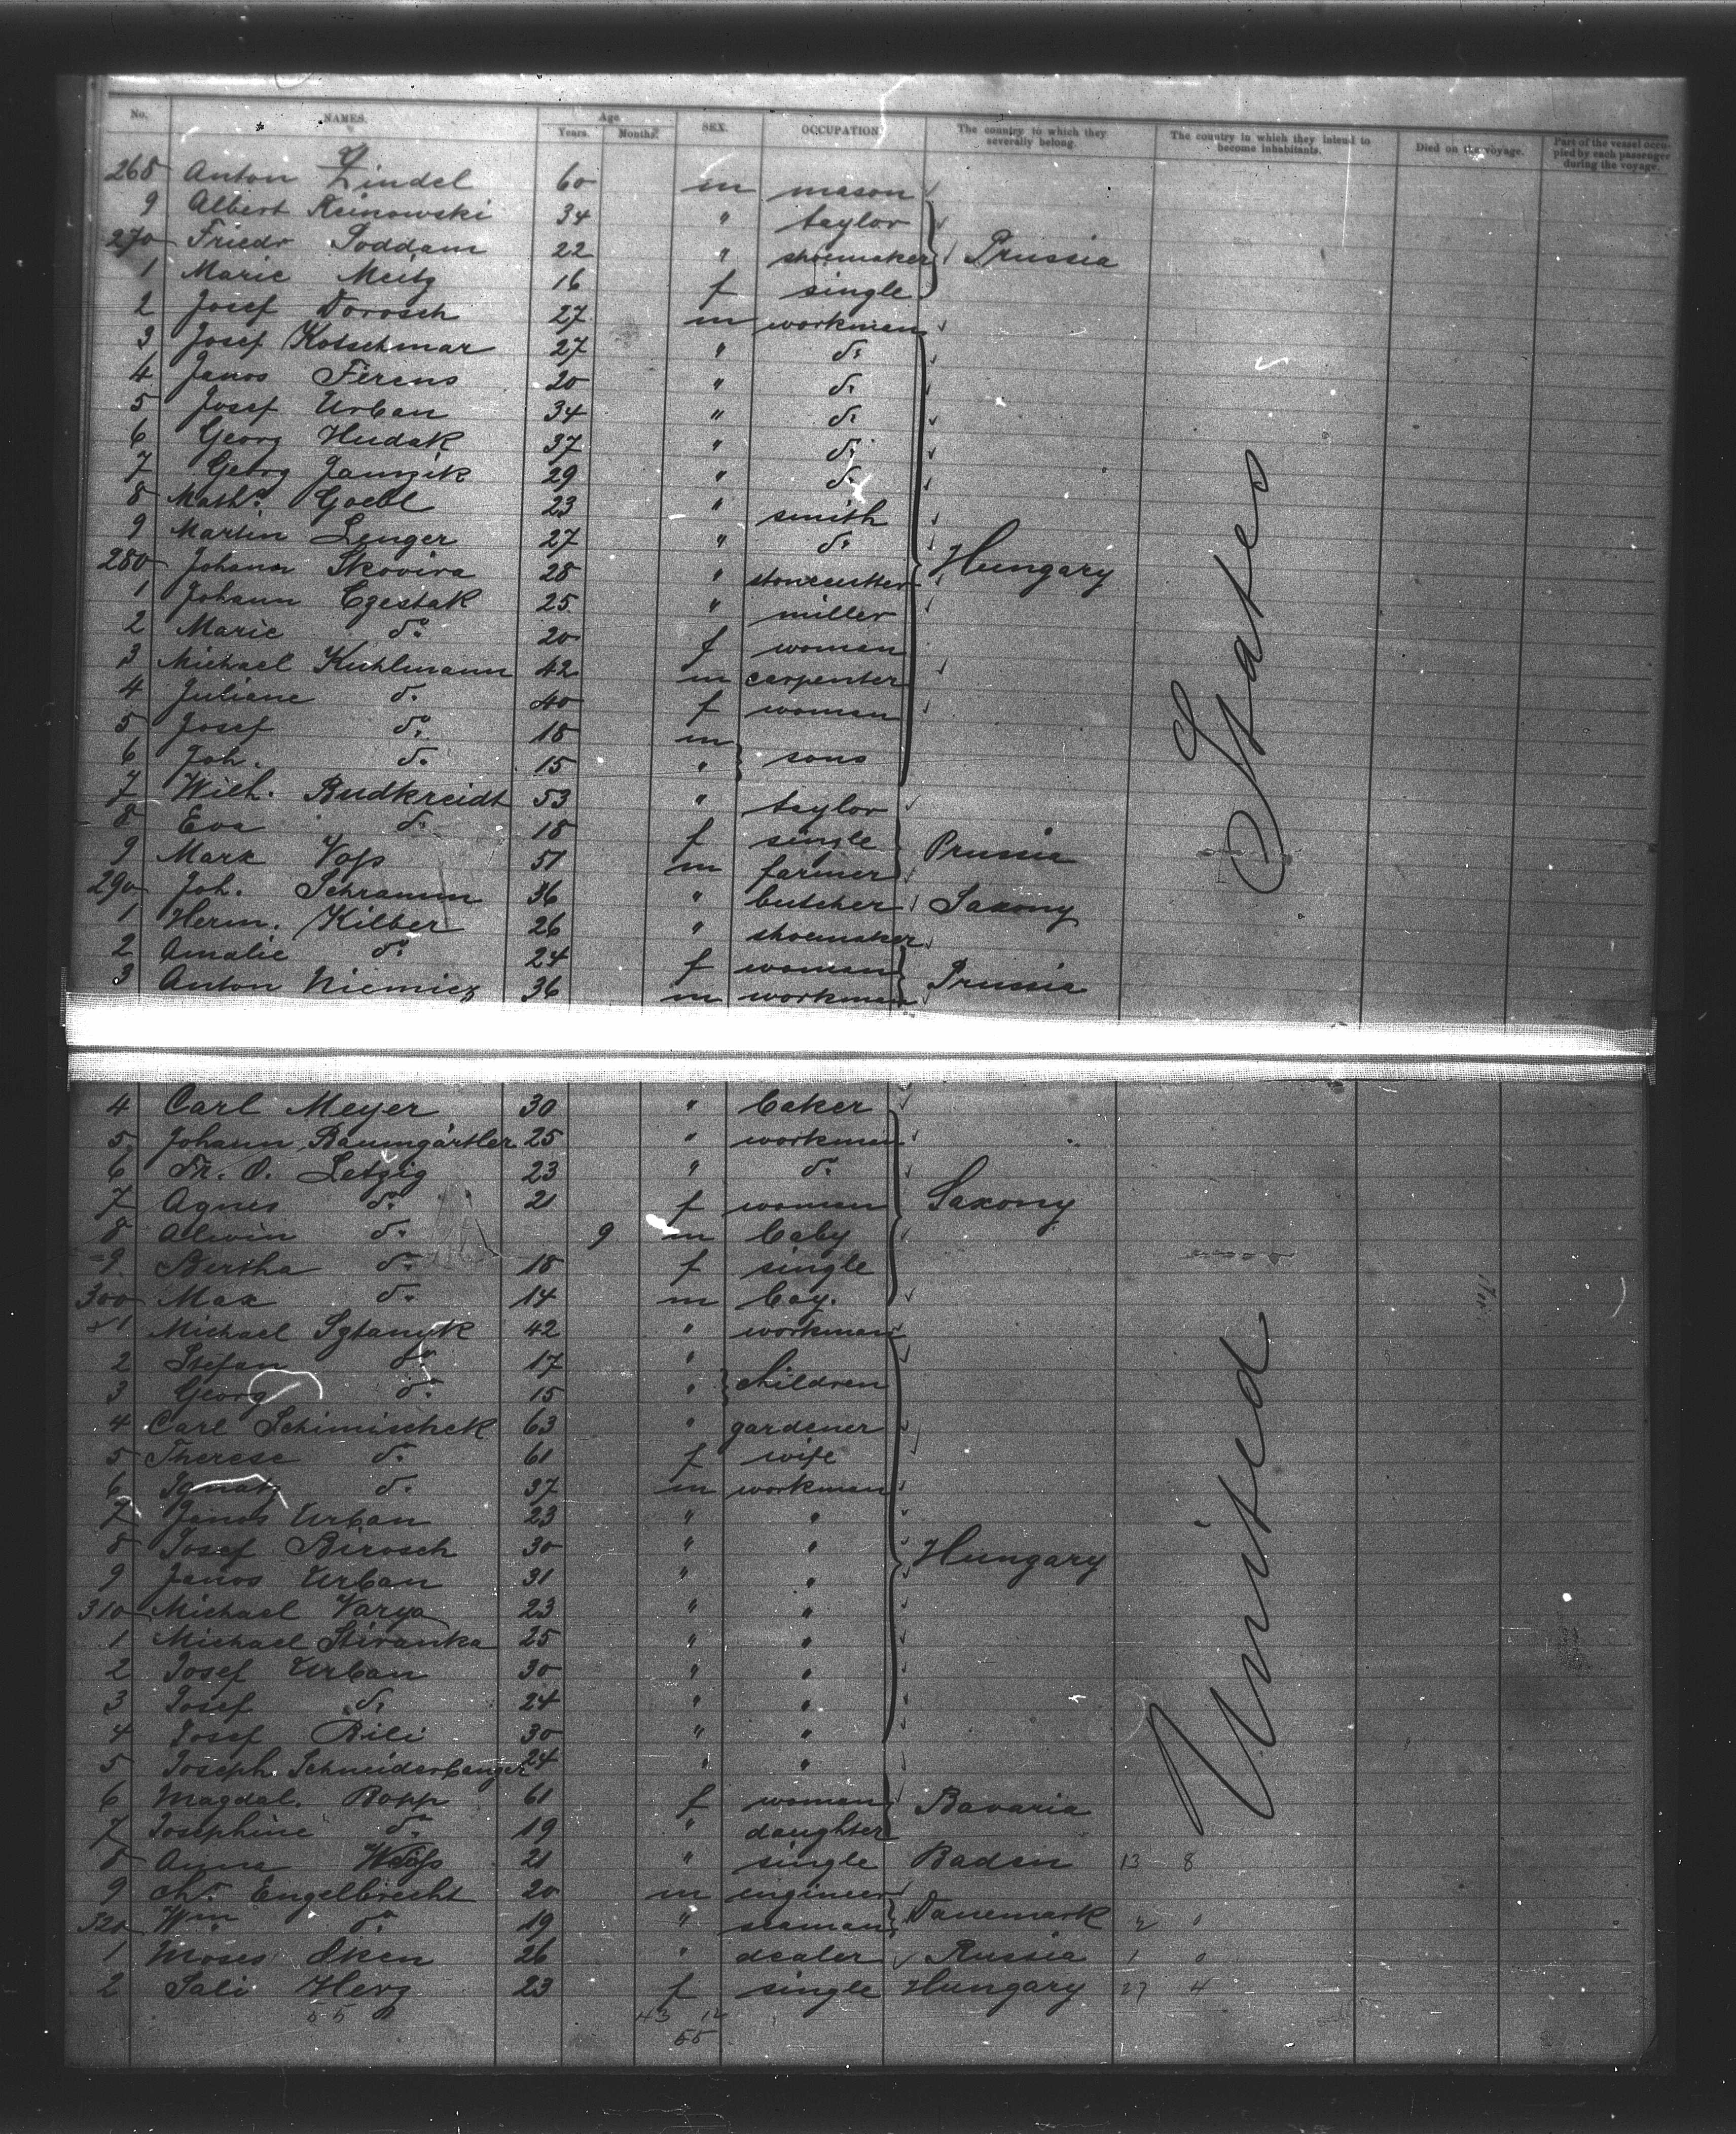 No. NAMES. Age Years. Months. SEX. OCCUPATION The country to which they severally belong. The country to which they intend to become inhabitants. Died on the voyage. Part of the vessel occupied by each passenger during the voyage.
268 Anton Zindel 60 m mason
9 Albert Reinowski 34 " taylor
270 Friedr Soddam 22 " shoemaker Prussia
1 Marie Meitz 16 f single
2 Josef Dorosch 27 m workman
3 Josef Kotschmar 27 " do
4 Janos Ferens 20 " do
5 Josef Urban 34 " do
6 Georg Hudak 37 " do
7 Georg Jamzik 29 " do
8 Maths. Goebl 23 " smith
9 Martin Lenger 27 " do
280 Johann Skovira 28 " stonecutter Hungary
1 Johann Czestak 25 " miller
2 Marie do 20 f woman
3 Michael Kuhlmann 42 m carpenter
4 Juliane do 40 f woman
5 Josef do 18 m
6 Joh. do 15 " sons
7 Wilh. Budkreidt 53 " taylor
8 Eva do 18 f single Prussia
9 Marx Voss 51 m farmer
290 Joh. Schramm 36 " butcher Saxony
1 Herm. Kilber 26 " shoemaker
2 Amalie do 24 f woman Prussia
3 Anton Niemiez 36 m workman
States
4 Carl Meyer 30 " baker
5 Johann Baumgärtler 25 " workman
6 Fr. O. Letzig 23 " do
7 Agnes do 21 f woman Saxony
8 Alwin do 9 m baby
9 Bertha do 18 f single
300 Max do 14 m boy.
1 Michael Sztanyk 42 " workman
2 Stefan do 17 "
3 Georg do 15 " children
4 Carl Schimischek 63 " gardener
5 Therese do 61 f wife
6 Ignatz do 37 m workman
7 Janos Urban 23 " "
8 Josef Birosch 30 " " Hungary
9 Janos Urban 31 " "
310 Michael Varga 23 " "
1 Michael Stiranka 25 " "
2 Josef Urban 30 " "
3 Josef do 24 " "
4 Josef Bili 30 " "
5 Joseph. Schneiderbanger 24 " "
6 Magdal. Bopp 61 f woman Bavaria
7 Josephine do 19 " daughter
8 Anna 21 " single Baden 13 8
9 Chr. Engelbrecht 20 m engineer
320 Wm do 19 " seaman Danemark 2 0
1 Moses Eken 26 " dealer Russia 1 0
2 Sali Herz 23 f single Hungary 27 4
55 43 12
55
United